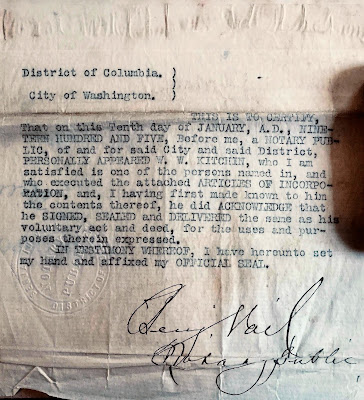 District of Columbia. }
City of Washington. }
THIS IS TO CERTIFY,
That on this Tenth day of JANUARY, A.D., NINE-
TEEN HUNDRED AND FIVE, Before me, a NOTARY PUB-
LIC, of and for said City and said District,
PERSONALLY APPEARED W. W. KITCHIN, who I am
satisfied is one of the persons named in, and
who executed the attached ARTICLES OF INCORPO-
RATION, and, I having first made known to him
the contents thereof, he did ACKNOWLEDGE that
he SIGNED, SEALED and DELIVERED the same as his
voluntary act and deed, for the uses and pur-
poses therein expressed.
IN TESTIMONY WHEREOF, I have hereunto set
my hand and affixed my OFFICIAL SEAL.
Benj Vail
Notary Public